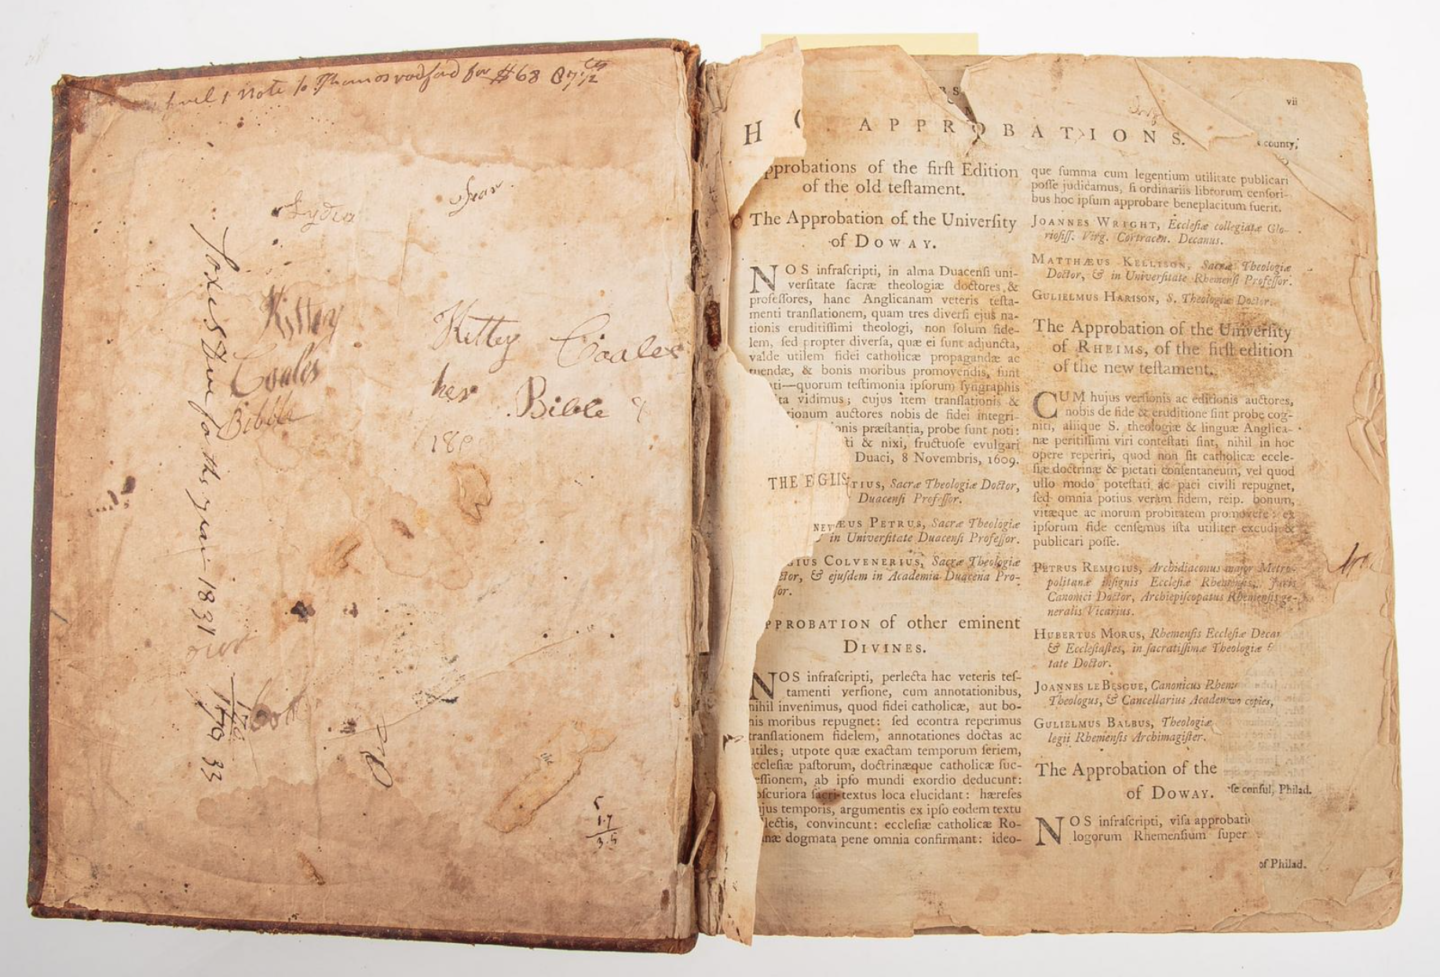 note to Thomas
for $68 87½
Lydia
Kittey
Coales
Bibille
Kittey Coales
her Bible &
Taxes Due for the year 1831
33
vii
APPROBATIONS.
county,
pprobations of the firſt Edition
of the old teſtament.
The Approbation of the Univerſity
of DOWAY.
NOS infraſcripti, in alma Duacenſi uni-
verſitate ſacræ theologiæ doctores &
profeſſores, hanc Anglicanam veteris teſta-
menti tranſlationem, quam tres diverſi ejus na-
tionis eruditiſſimi theologi, non ſolum fide-
lem, ſed propter diverſa, quæ ei ſunt adjuncta,
valde utilem fidei catholicæ propagandæ ac
mendæ, & bonis moribus promovendis, ſunt
ti—quorum teſtimonia ipſorum ſyngraphis
ta vidimus; cujus item tranſlationis &
tionum auctores nobis de fidei integri-
onis præſtantia, probe ſunt noti:
ti & nixi, fructuoſe evulgari
Duaci, 8 Novembris, 1609.
THE EGLIS
TIUS, Sacræ Theologiæ Doctor,
Duacenſi Profeſſor.
ÆUS PETRUS, Sacræ Theologiæ
in Univerſitate Duacenſi Profeſſor.
GIUS COLVENERIUS, Sacræ Theologiæ
ctor, & ejuſdem in Academia Duacena Pro-
or.
PPROBATION of other eminent
DIVINES.
NOS infraſcripti, perlecta hac veteris teſ-
tamenti verſione, cum annotationibus,
nihil invenimus, quod fidei catholicæ, aut bo-
nis moribus repugnet: ſed econtra reperimus
tranſlationem fidelem, annotationes doctas ac
utiles; utpote quæ exactam temporum ſeriem,
ccleſiæ paſtorum, doctrinæque catholicæ ſuc-
eſſionem, ab ipſo mundi exordio deducunt:
obſcuriora ſacri textus loca elucidant: hæreſes
jus temporis, argumentis ex ipſo eodem textu
lectis, convincunt: eccleſiæ catholicæ Ro-
næ dogmata pene omnia confirmant: ideo-
que ſumma cum legentium utilitate publicari
poſſe judicamus, ſi ordinariis librorum cenſori-
bus hoc ipſum approbare beneplacitum fuerit.
JOANNES WRIGHT, Eccleſiæ collegiatæ Glo-
rioſiſſ. Virg. Cortracen. Decanus.
MATTHÆUS KELLISON, Sacræ Theologiæ
Doctor, & in Univerſitate Rhemenſi Profeſſor.
GULIELMUS HARISON, S. Theologiæ Doctor.
The Approbation of the Univerſity
of RHEIMS, of the firſt edition
of the new teſtament.
CUM hujus verſionis ac editionis auctores,
nobis de fide & eruditione ſint probe cog-
niti, aliique S. theologiæ & linguæ Anglica-
næ peritiſſimi viri conteſtati ſint, nihil in hoc
opere reperiri, quod non ſit catholicæ eccle-
ſiæ doctrinæ & pietati conſentaneum, vel quod
ullo modo poteſtati ac paci civili repugnet,
ſed omnia potius veram fidem, reip. bonum,
vitæque ac morum probitatem promovere: ex
ipſorum fide cenſemus iſta utiliter excudi &
publicari poſſe.
PETRUS REMIGIUS, Archidiaconus major Metro-
politanæ inſignis Eccleſiæ Rhemenſis, Juris
Canonici Doctor, Archiepiſcopatus Rhemenſis ge-
neralis Vicarius.
HUBERTUS MORUS, Rhemenſis Eccleſiæ Decan
& Eccleſiaſtes, in ſacratiſſimæ Theologiæ
tate Doctor.
JOANNES LE BESGUE, Canonicus Rhem
Theologus, & Cancellarius Academ
copies,
GULIELMUS BALBUS, Theologiæ
legii Rhemenſis Archimagiſter.
The Approbation of the
of DOWAY.
ſe conſul, Philad.
NOS infraſcripti, viſa approbati
logorum Rhemenſium ſuper
of Philad.